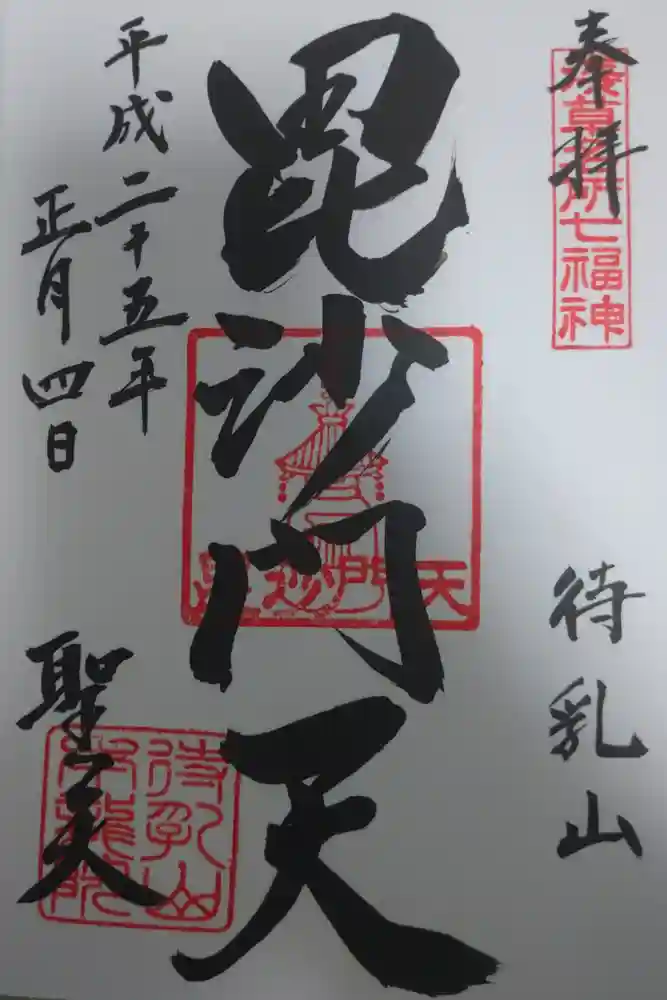 奉拝
淺草名所七福神
待乳山
毘沙門天
毘沙門天
平成二十五年
正月四日
聖天
待乳山
本龍院